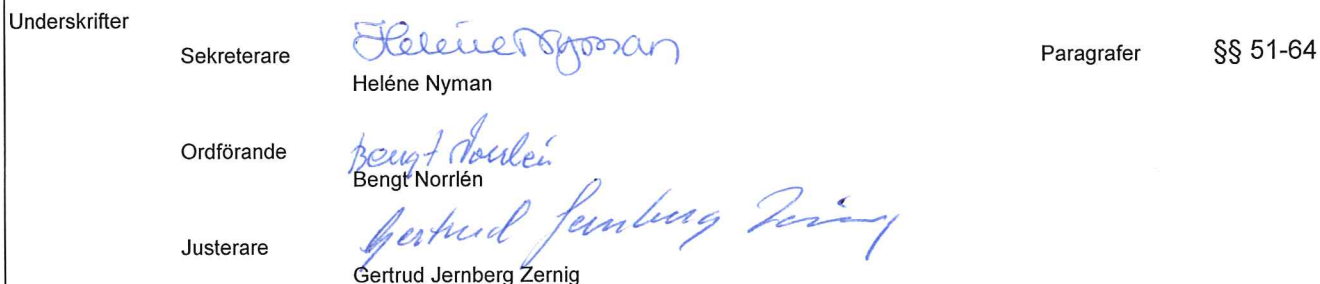 Underskrifter
Sekreterare Heléne Nyman Paragrafer §§ 51-64
Heléne Nyman
Ordförande Bengt Norrlén
Bengt Norrlén
Justerare Gertrud Jernberg Zernig
Gertrud Jernberg Zernig